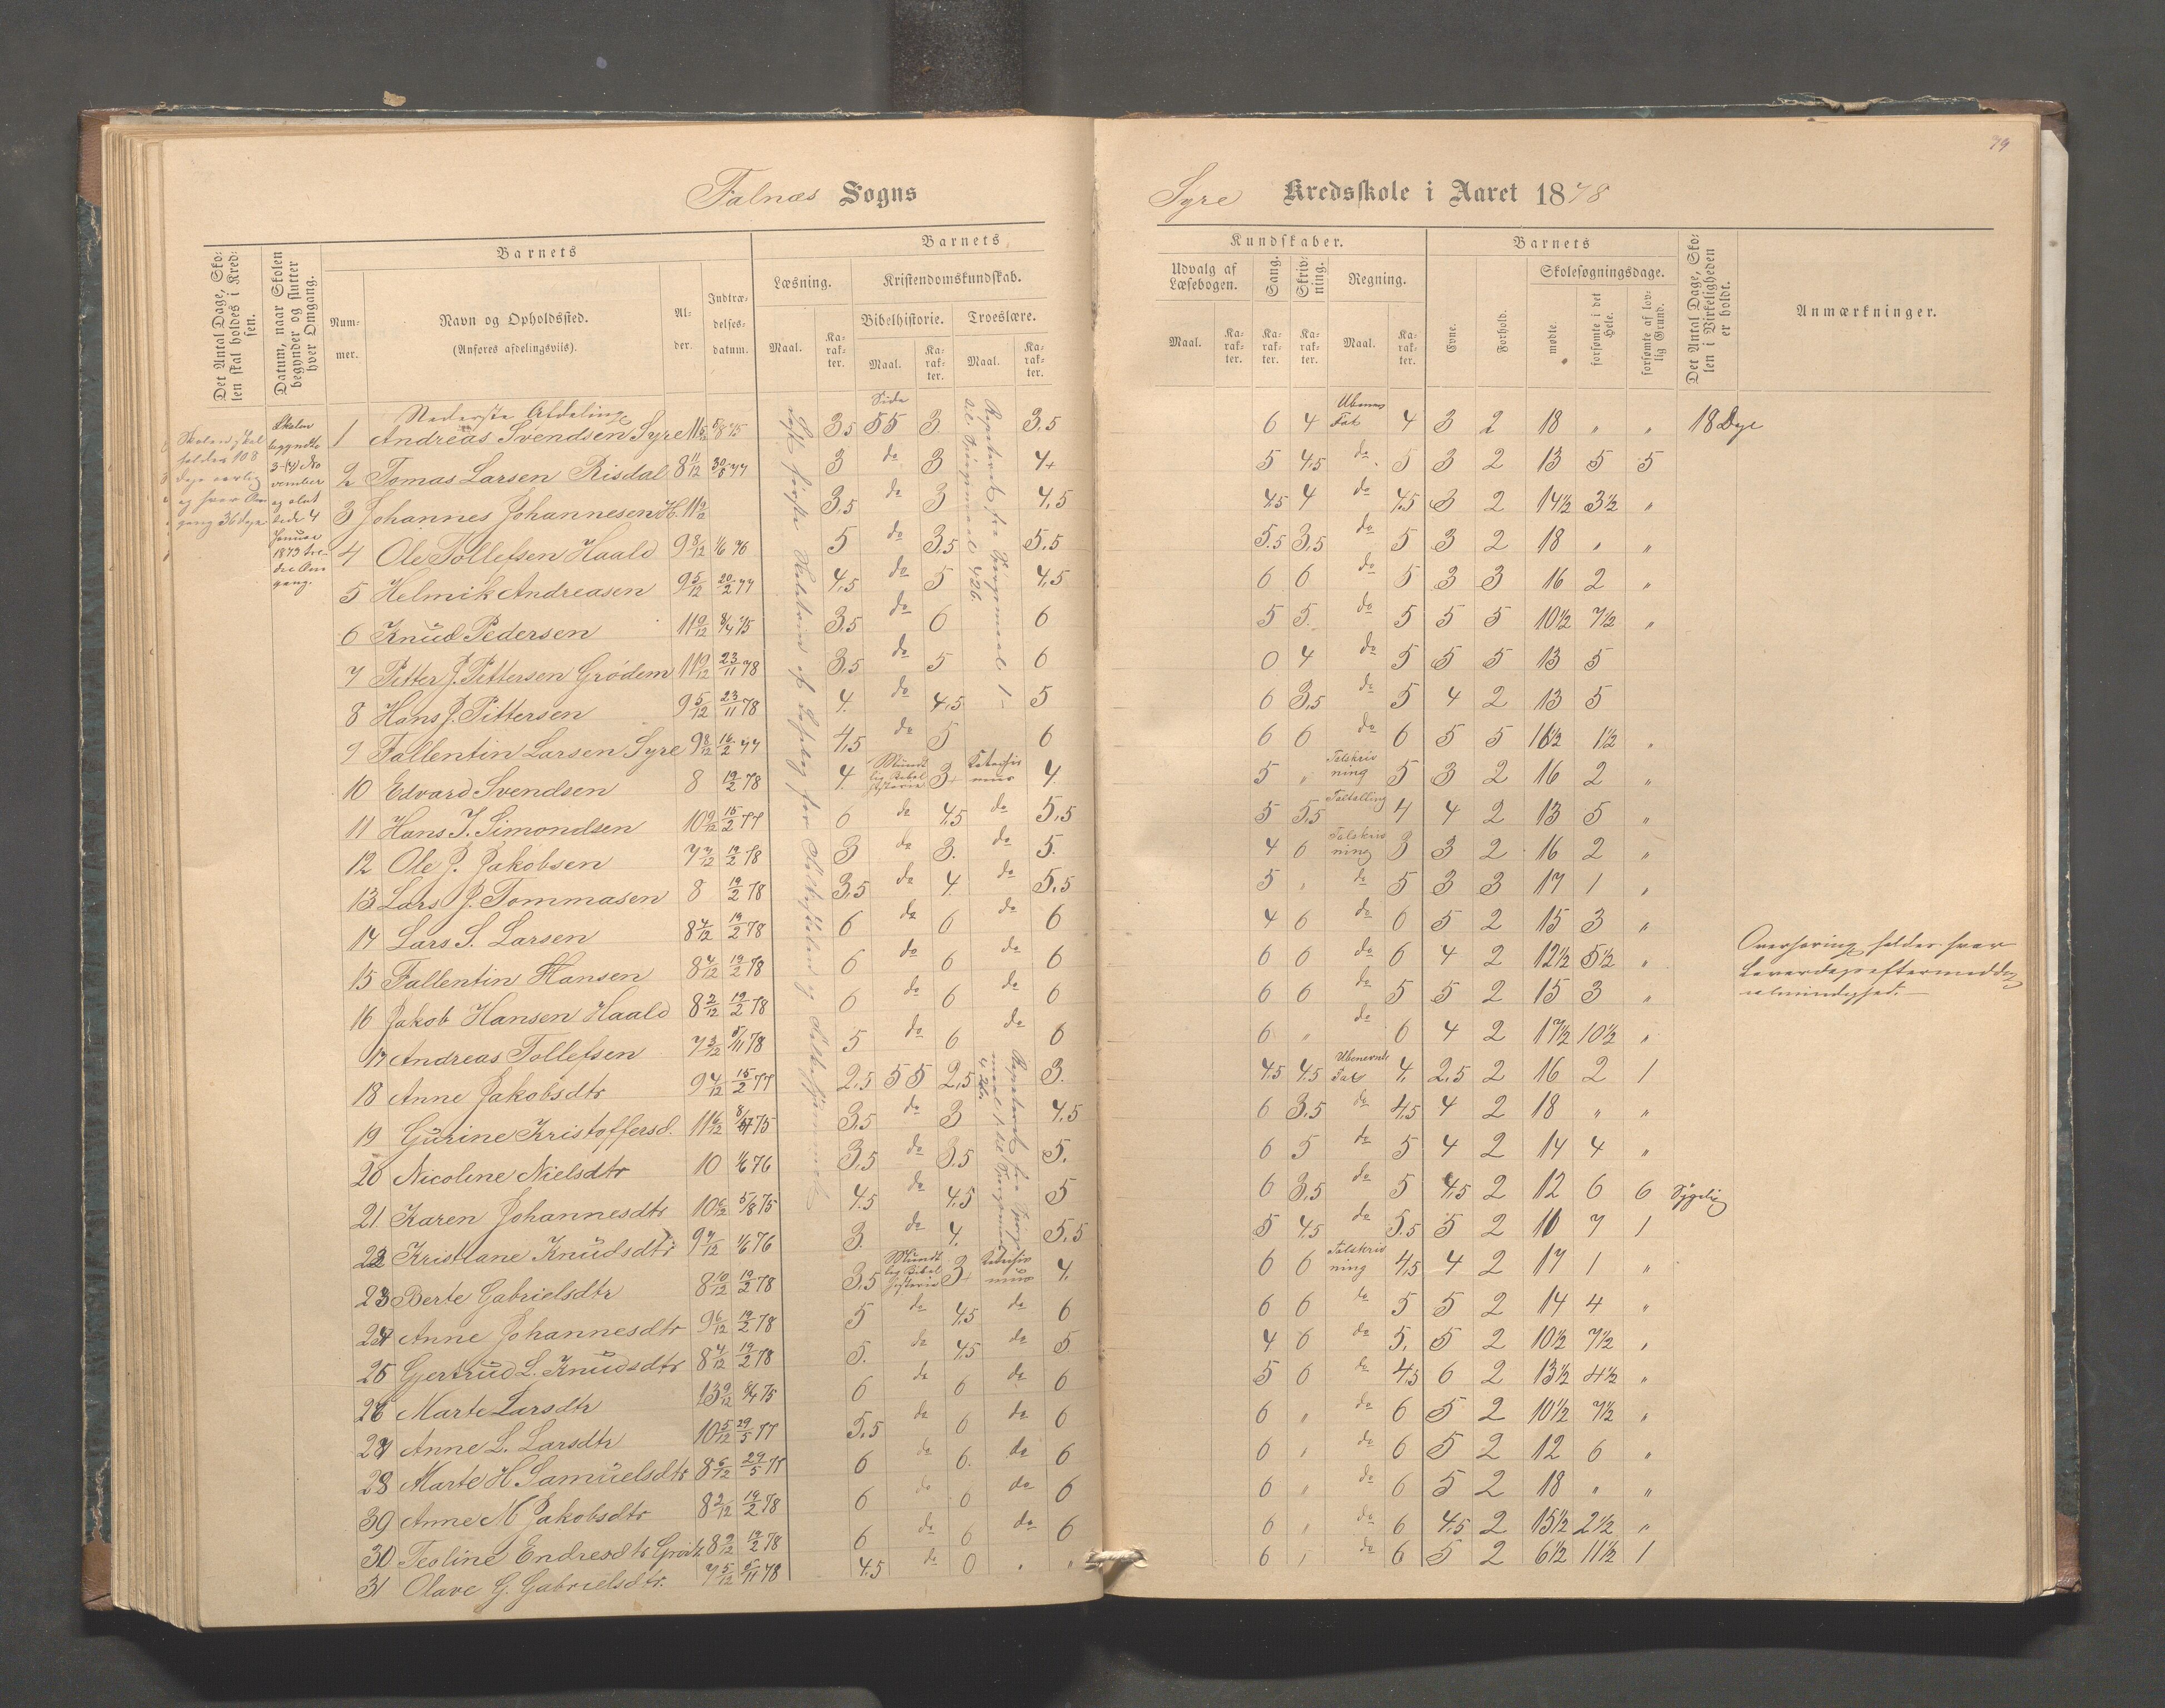 79
Falnæs Sogns
Syre Kredsskole i Aaret 1878
Det Antal Dage, Skolen skal holdes i Kredsen.
Datum, naar Skolen begynder og slutter hver Omgang.
Barnets
Nummer.
Navn og Opholdssted.
(Anføres afdelingsviis).
Alder.
Indtrædelsesdatum.
Barnets
Læsning.
Kristendomskundskab.
Bibelhistorie. Troeslære.
Maal. Karakter. Maal. Karakter. Maal. Karakter.
Kundskaber.
Udvalg af Læsebogen. Sang. Skrivning. Regning.
Maal. Karakter. Karakter. Karakter. Maal. Karakter.
Barnets
Evne. Forhold.
Skolesøgningsdage.
mødte. forsømte i det Hele. forsømte af lovlig Grund.
Det Antal Dage, Skolen i Virkeligheden er holdt.
Anmærkninger.
Skolen skal holdes 108 dage aarlig og hver Omgang 36 dage
Skolen begyndte
Nederste Afdeling
1 Andreas Svendsen Syre 3,5 Side 55 3 3,5 6 4 4 3 2 18 " " 18 Dge
2 Tomas Larsen Risdal 8 11/12 3 do 3 4+ 5 4,5 do 5 3 2 13 5 5
3 Johannes Johannesen H. 3,5 do 3 4,5 4,5 4 do 4,5 3 2 14½ 3½ "
4 Ole Tollefsen Haald 9 8/12 1/6 76 5 do 3,5 5,5 5,5 3,5 do 5 3 2 18 " "
5 Helmik Andreasen 9 5/12 20/2 77 4,5 do 5 4,5 6 6 do 5 3 3 16 2 "
6 Knud Pedersen 8/4 75 3,5 do 6 6 5 5. do 5 5 5 10½ 7½ "
7 Pitter J. Pittersen Grødem 23/11 78 3,5 do 5 6 0 4 do 5 5 5 13 5
8 Hans J. Pittersen 9 5/12 23/11 78 4. do 4,5 5 6 3,5 do 5 4 2 13 5
9 Fallentin Larsen Syre 9 8/12 16/2 77 4,5 do 5 6 6 6 do 6 5 5 16½ 1½ "
10 Edvard Svendsen 8 19/2 78 4. Mundtlig Bibelhistorie 3+ Katechismus 4. 5 " Talskrivning 5 3 2 16 2 "
11 Hans I. Simondsen 10 9/12 15/2 77 6 do 4,5 do 5,5 5 5,5 Taltælling 4 4 2 13 5 "
12 Ole J. Jakobsen 7 7/12 19/2 78 3 do 3. do 5. 4 6 Talskrivning 3 3 2 16 2 "
13 Lars J. Tommasen 8 19/2 78 3,5 do 4. do 5,5 5 " do 5 3 3 17 1 "
14 Lars S. Larsen 8 4/12 19/2 78 6 do 6 do 6 4 6 do 6 5 2 15 3 "
15 Fallentin Hansen 8 4/12 19/2 78 6 do 6 do 6 6 6 do 6 4 2 12½ 5½ "
16 Jakob Hansen Haald 8 2/12 19/2 78 6 do 6 do 6 6 6 do 5 5 2 15 3 "
17 Andreas Tollefsen 7 3/12 5/11 78 5 do 6 do 6 6 " do 6 4 2 17½ 10½ "
18 Anne Jakobsdtr 9 4/12 15/2 77 2,5 55 2,5 3. 4,5 4,5 Ubenevnte Tal 4. 2,5 2 16 2 1
19 Gurine Kristoffersd. 3,5 do 3 4,5 6 3,5 do 4,5 4 2 18 " "
20 Nicoline Nielsdtr 10 1/6 76 3,5 do 3,5 5. 6 5 do 5 4 2 14 4 "
21. Karen Johannesdtr 10 6/12 5/8 75 4,5 do 4,5 5 6 3,5 do 5 4,5 2 12 6 6 Sygelig
22 Kristiane Knudsdtr 9 7/12 1/6 76 3. do 4. 5,5 5 4,5 do 5,5 5 2 10 7 1
23 Berte Gabrielsdtr 8 10/12 19/2 78 3,5 Mundtlig Bibelhistorie 3+ Katechismus 4. 6 6 Talskrivning 4,5 4 2 17 1 "
24 Anne Johannesdtr 9 6/12 19/2 78 5 do 4,5 do 6 6 6 do 5 5 2 14 4 "
25 Gertrud L. Knudsdtr 8 4/12 19/2 78 5. do 4,5 do 5 4. 6 do 5, 5 2 10½ 7½ "
26 Marte Larsdtr 13 9/12 8/4 75 6 do 6 do 6 5 6 do 4,5 6 2 13½ 4½ "
27 Anne L. Larsdtr 10 5/12 29/5 77 5,5 do 6 do 6 6 " do 6 5 2 10½ 7½ "
28 Marte H. Samuelsdtr 8 6/12 29/5 6 do 6. do 6 6 " do 6 5 2 12 6 "
39 Anne M Jakobsdtr 8 2/12 19/2 78 6 do 6 do 6 6 " do 6 5 2 18 " "
30 Teoline Endresdtr 19/2 78 6 do 6 do 6 6 " do 6 4,5 2 15½ 2½ "
31 Olave G. Gabrielsdtr. 7 5/12 5/11 78 4,5 do 0 " " 6 " do 6 5 2 6½ 11½ 1
Overhøring holdes hver
Løverdagseftermiddag